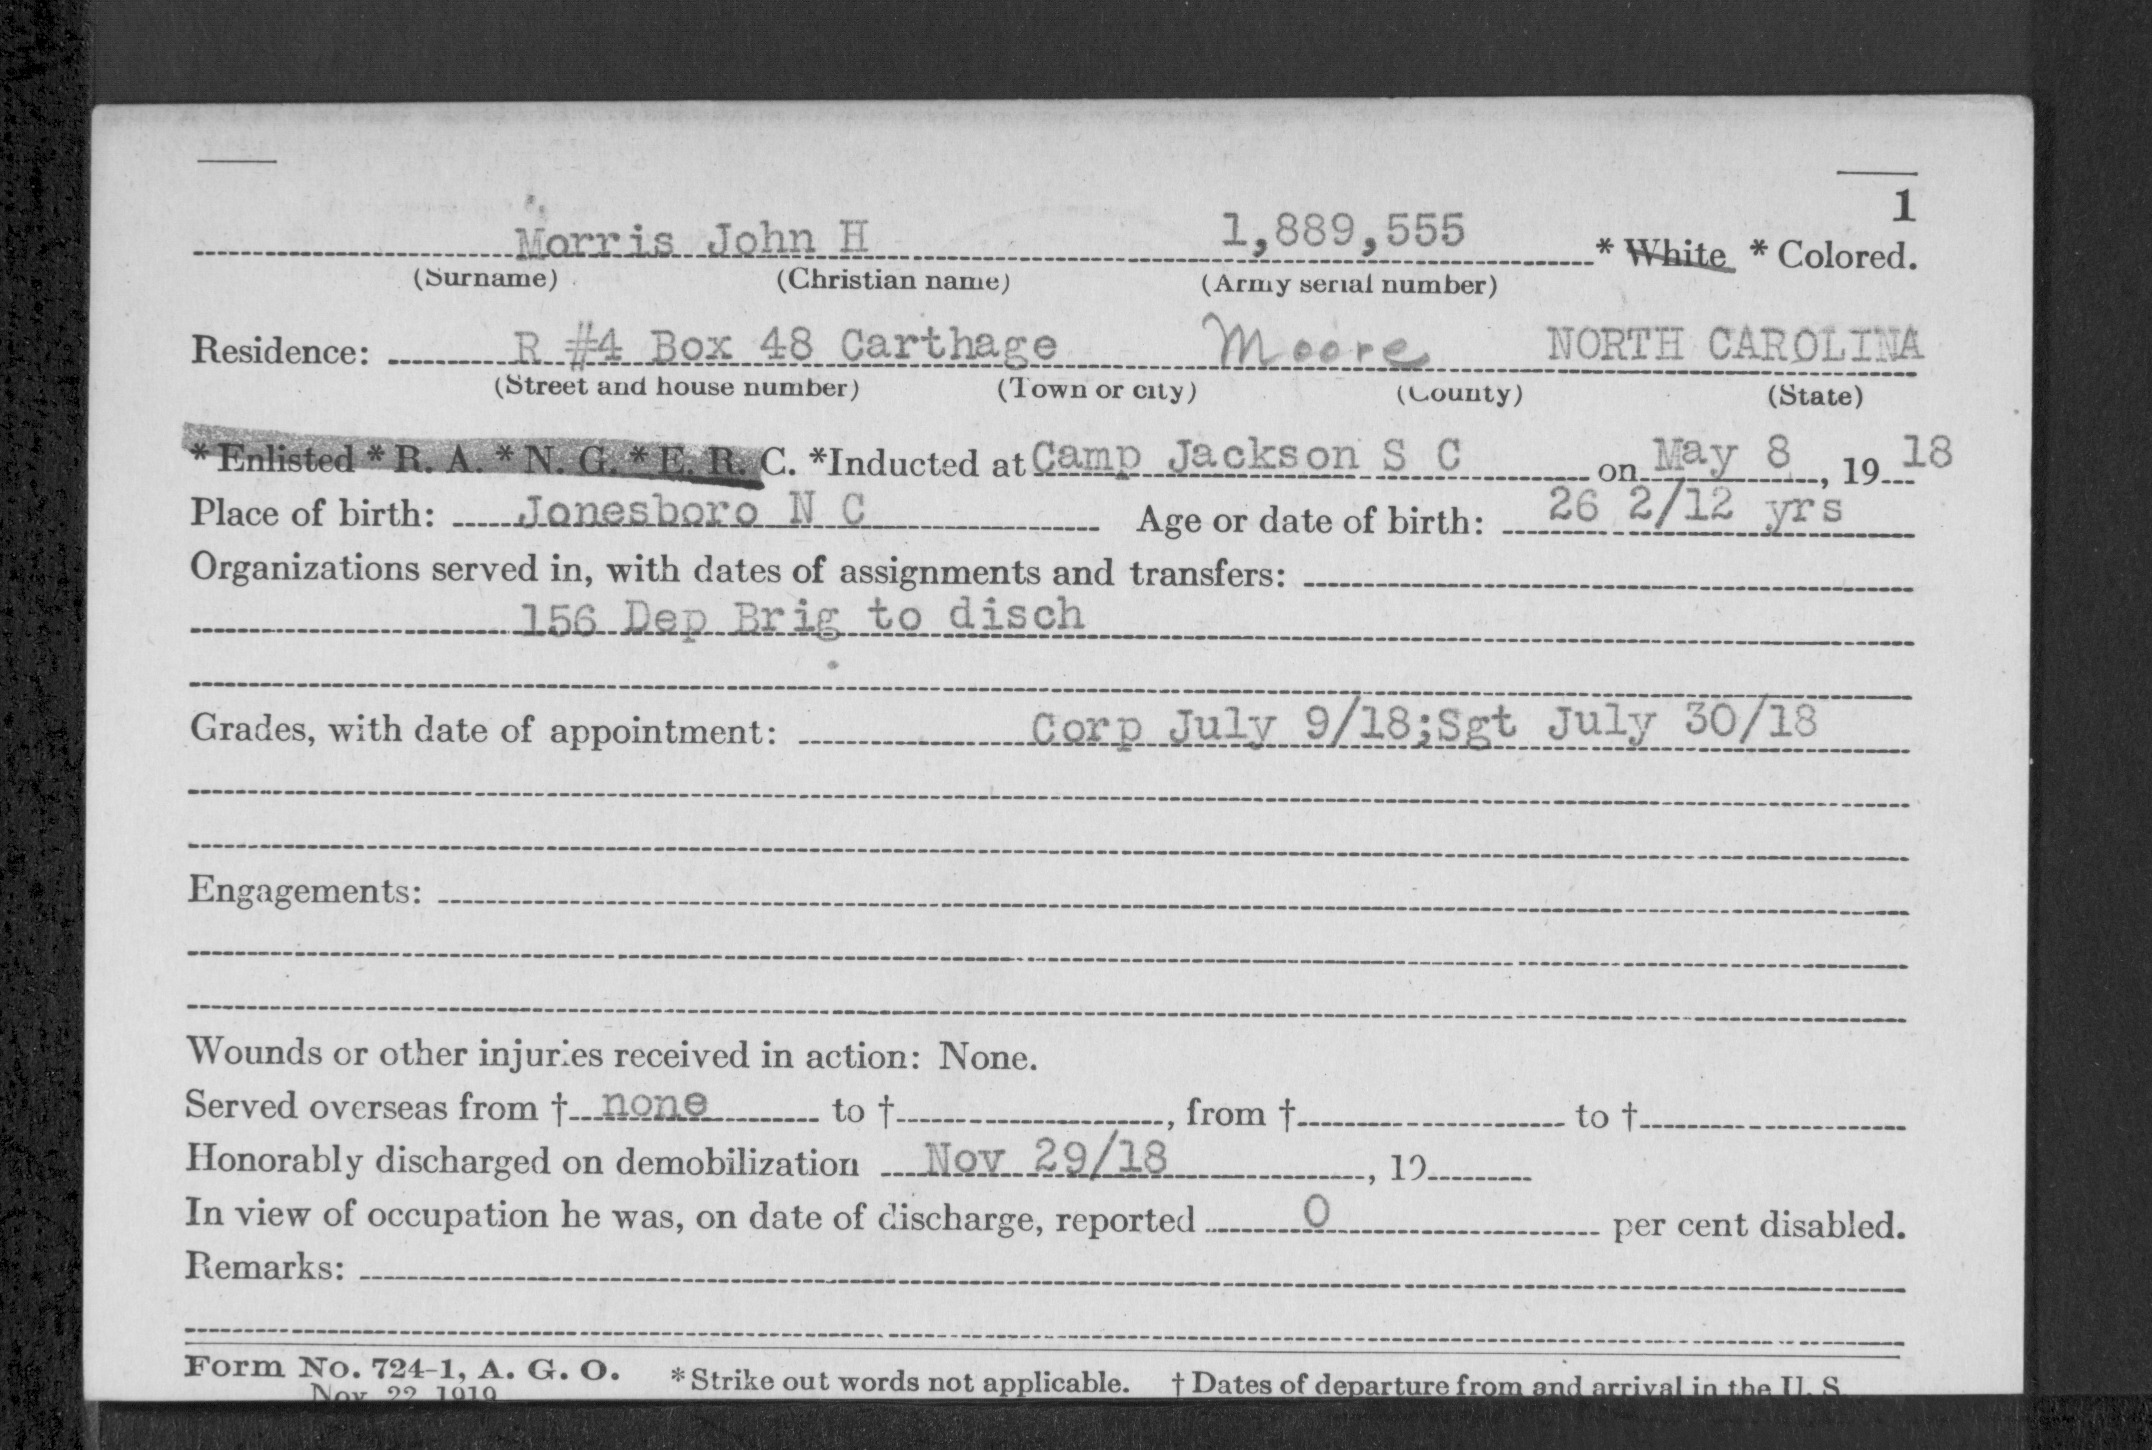 1
Morris John H 1,889,555 * White * Colored.
(Surname) (Christian name) (Army serial number)
Residence: R #4 Box 48 Carthage Moore NORTH CAROLINA
(Street and house number) (Town or city) (County) (State)
* Enlisted * R. A. * N. G. * E. R. C. *Inducted at Camp Jackson S C on May 8, 19 18
Place of birth: Jonesboro N C Age or date of birth: 26 2/12 yrs
Organizations served in, with dates of assignments and transfers:
156 Dep Brig to disch
Grades, with date of appointment: Corp July 9/18;Sgt July 30/18
Engagements:
Wounds or other injuries received in action: None.
Served overseas from † none to †, from † to †
Honorably discharged on demobilization Nov 29/18, 19
In view of occupation he was, on date of discharge, reported 0 per cent disabled.
Remarks:
Form No. 724-1, A. G. O. * Strike out words not applicable. † Dates of departure from and arrival in the U. S.
Nov. 22, 1919